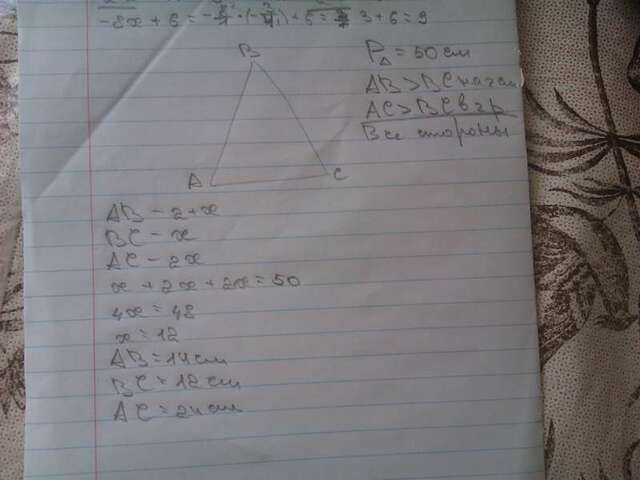 -8x + 6 = 3 + 6 = 9
B
P△ = 50 см
AB > BC на 2 см
AC > BC в 2 р
Все стороны
A
C
AB - 2 + x
BC - x
AC - 2x
x + 2x + 2x = 50
4x = 48
x = 12
AB = 14 см
BC = 12 см
AC = 24 см